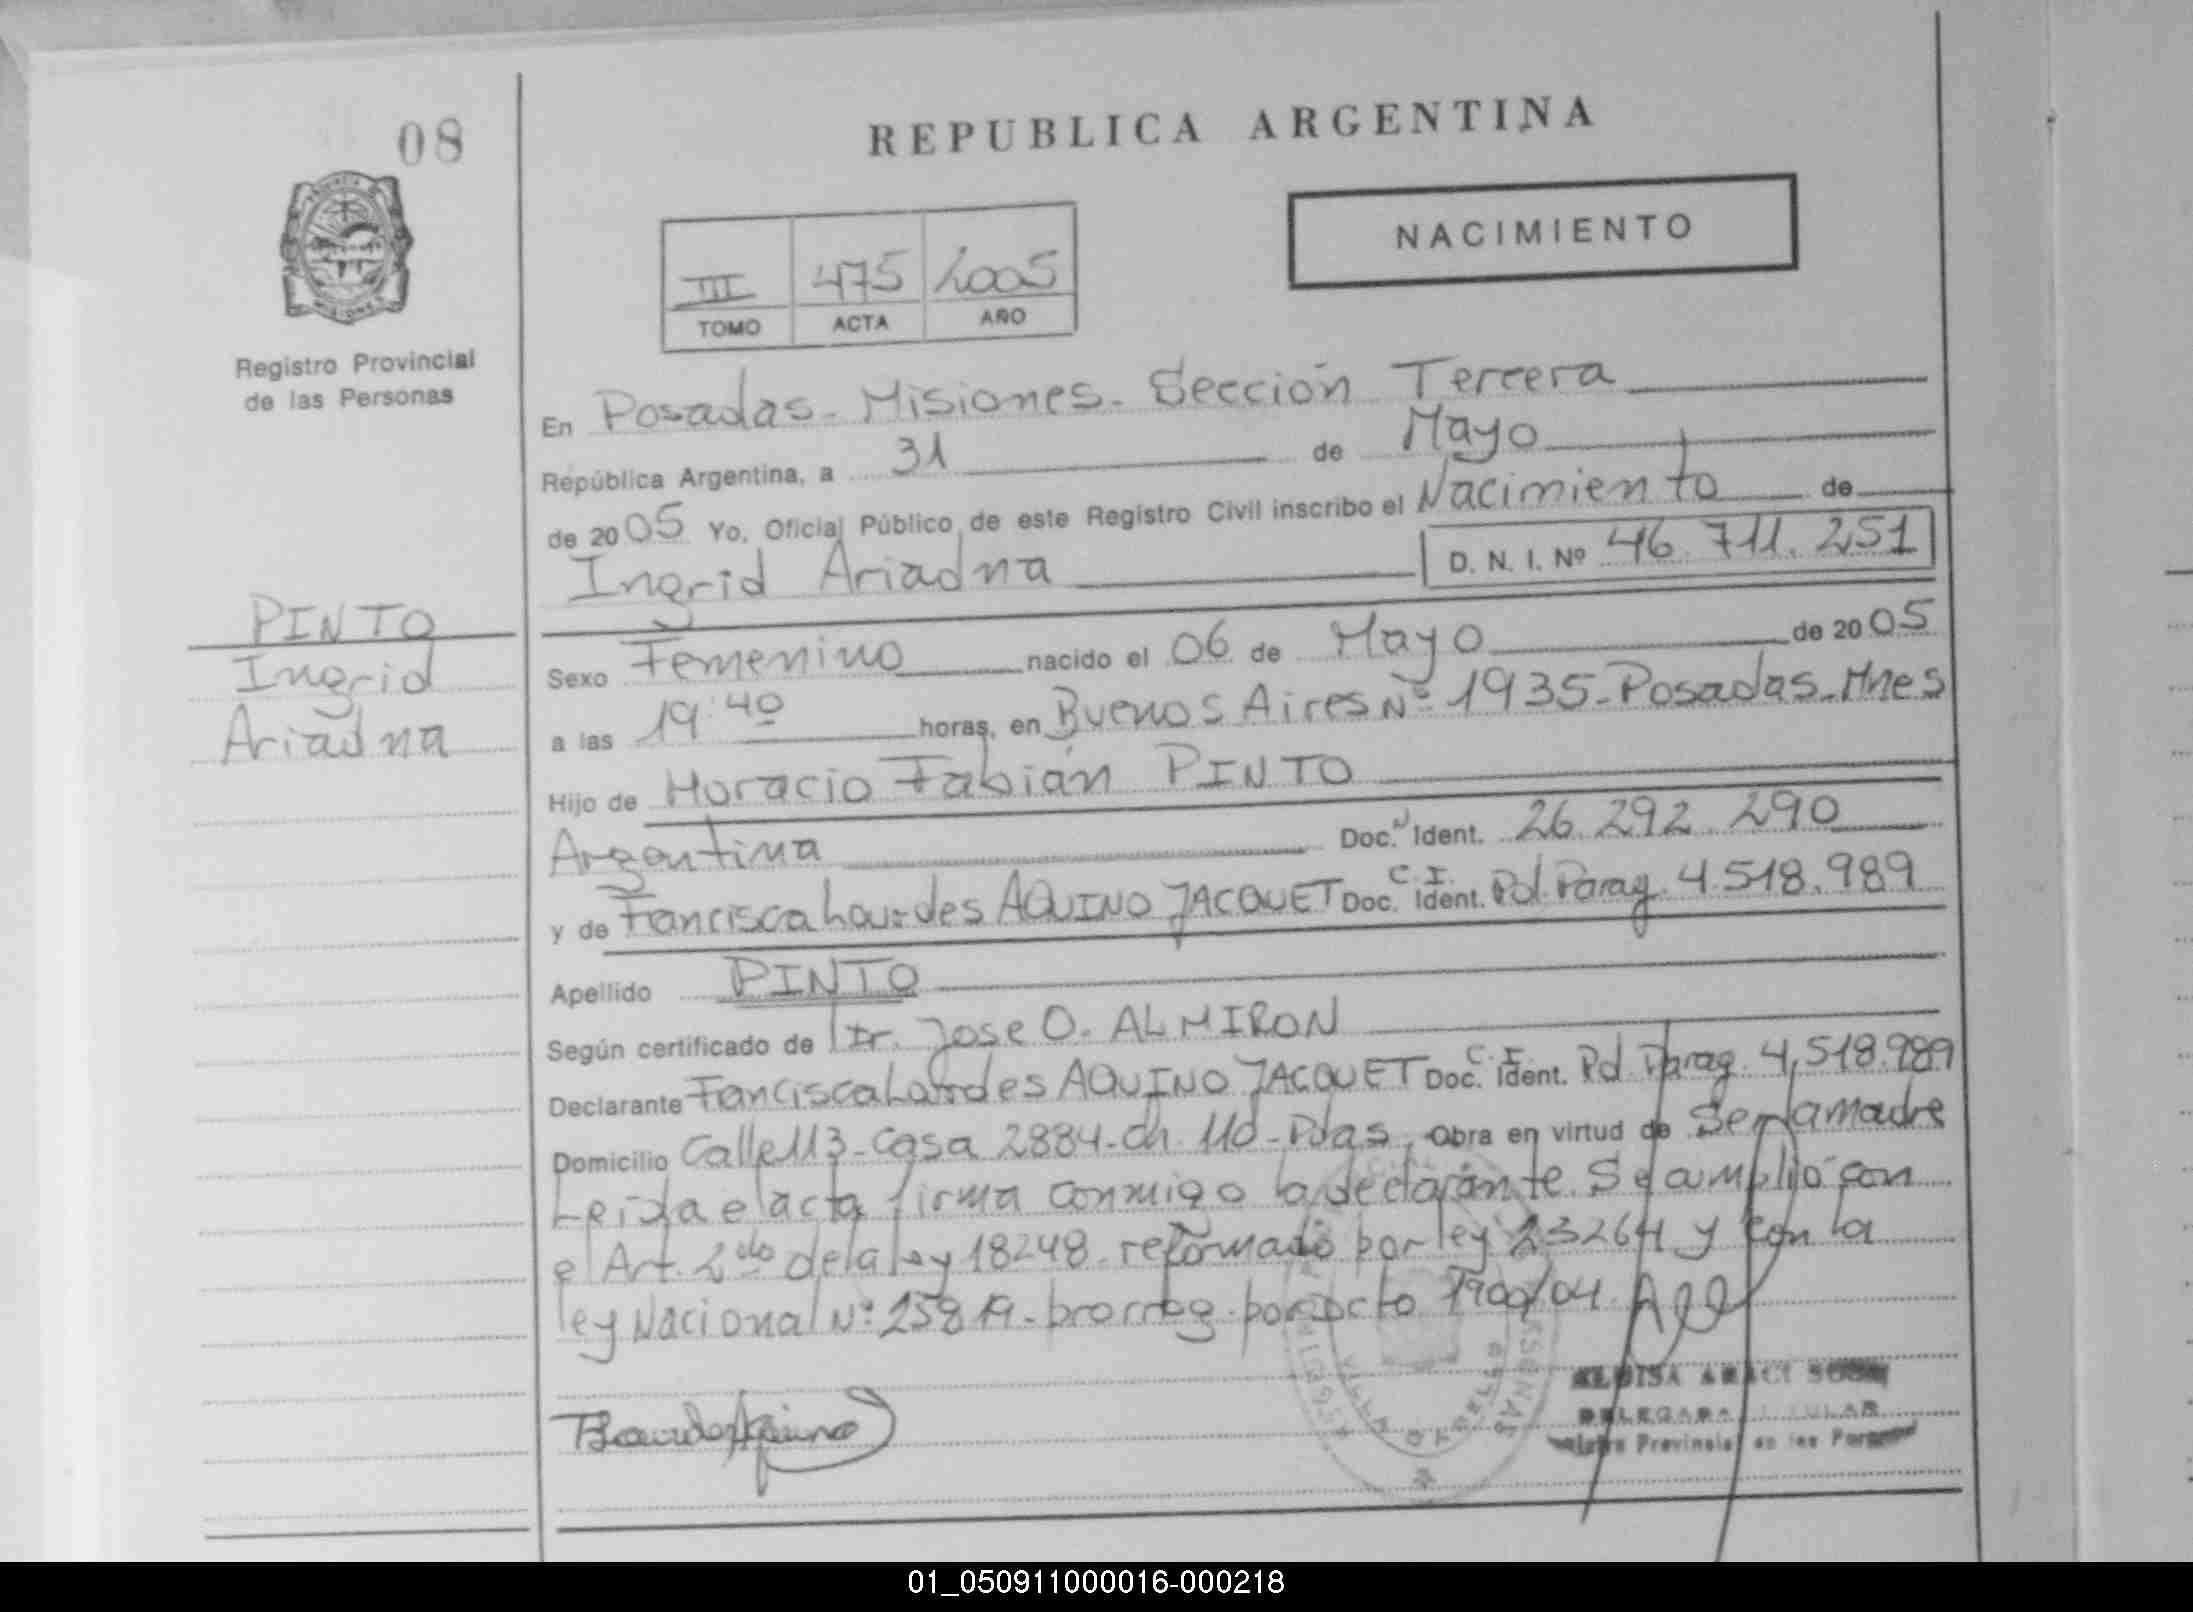 08
REPUBLICA ARGENTINA
NACIMIENTO
III 475 2005
TOMO ACTA AÑO
Registro Provincial
de las Personas
En Posadas - Misiones - Sección Tercera
República Argentina, a 31 de Mayo
de 2005 Yo, Oficial Público de este Registro Civil inscribo el Nacimiento de
Ingrid Ariadna D. N. I. Nº 46.711.251
PINTO
Ingrid
Ariadna
Sexo Femenino nacido el 06 de Mayo de 2005
a las 19:40 horas, en Buenos Aires Nº 1935 - Posadas - Mnes
Hijo de Horacio Fabián PINTO
Argentina Doc. Ident. 26.292.290
y de Francisca Lourdes AQUINO JACQUET Doc. C.I. Ident. Pol. Parag. 4.518.989
Apellido PINTO
Según certificado de Dr. Jose O. ALMIRON
Declarante Francisca Lourdes AQUINO JACQUET Doc. C.I. Ident. Pol. Parag. 4.518.989
Domicilio Calle 113 - Casa 2884 - ch. 110 - Pdas. Obra en virtud de Ser la madre
Leida el acta firma conmigo la declarante. Se amplió con
el Art. 2do de la ley 18248 reformado por ley 23264 y con la
ley Nacional Nº 25819 - prorrog. por Dcto 1900/04.
DELEGADA TITULAR
Provincial de las Personas
01_050911000016-000218